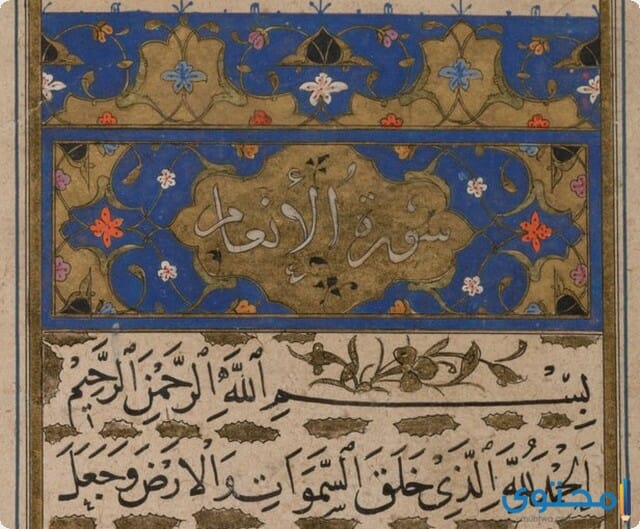 سورة الأنعام
بِسْمِ اللَّهِ الرَّحْمَٰنِ الرَّحِيمِ
اَلْحَمْدُ لِلَّهِ الَّذِي خَلَقَ السَّمَوَاتِ وَالْاَرْضَ وَجَعَلَ
محتوى
muhtwa.com